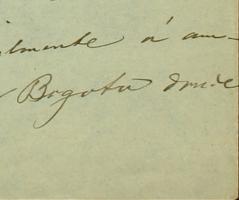 ilmente á am-
Bogota donde